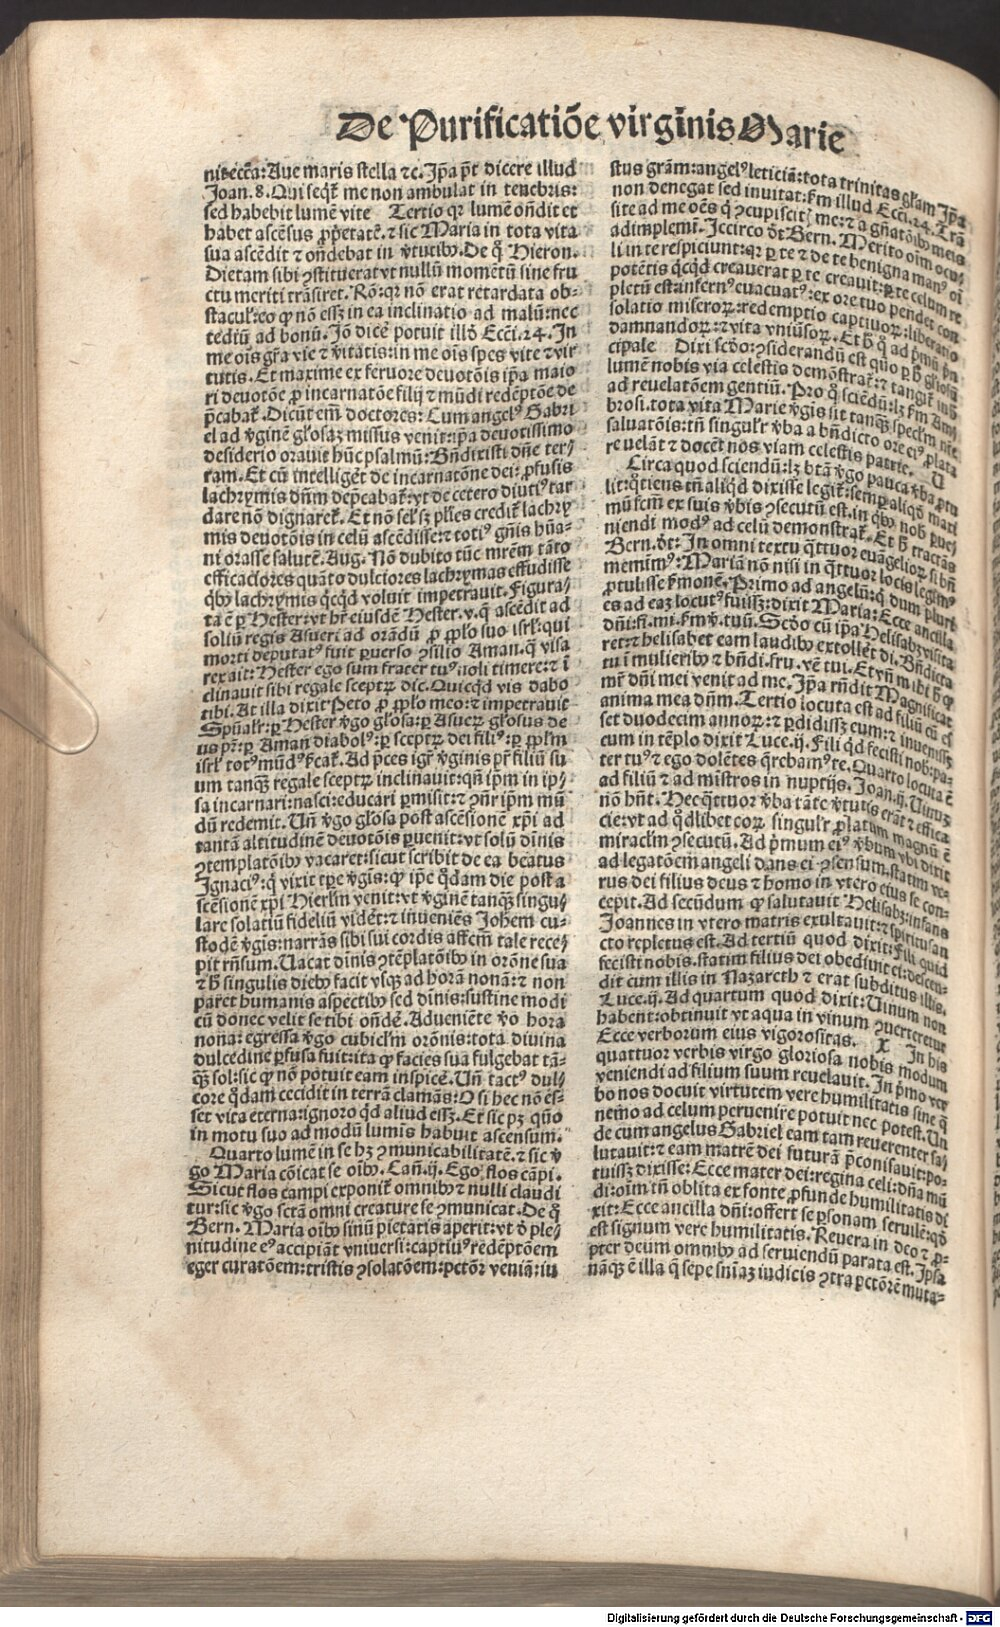 De Purificatiōe virginis Marie
nit eccĩa: Aue maris stella ⁊c. Ip̃a p̃t dicere illud
Joan. 8. Qui seqt̃ me non ambulat in tenebris:
sed habebit lumẽ vite Tertio qꝛ lumẽ oñdit et
habet ascẽsus ꝓp̃etatẽ. ⁊ sic Maria in tota vita
sua ascẽdit ⁊ oñdebat in v̾tutibꝰ. De q̊ Hieron.
Dietam sibi ꝯstituerat vt nullũ momẽtũ sine fru
ctu meriti trãsiret. Rõ: qꝛ non erat retardata ob-
stacul̕: eo ꝙ nõ essꝫ in ea inclinatio ad malũ: nec
tediũ ad bonũ. Jõ dicẽ potuit illđ Ecci. 24. In
me oĩs gr̃a vie ⁊ v̾itatis: in me oĩs spes vite ⁊ vir
tutis. Et maxime ex feruore deuotõis ip̃a maio
ri deuotõe ꝓ incarnatõe filij ⁊ mũdi redẽptõe de
p̃cabat̃. Dicũt em̃ doctores: Cum angelꝰ Gabri
el ad v̾ginẽ gl̕osaꝫ missus venit: ip̃a deuotissimo
desiderio orauit hũc psalmũ: Bñdixisti dñe ter-
ram. Et cũ intelligẽt̃ de incarnatõne dei: ꝓfusis
lachrymis dñm dep̃cabat̃: vt de cetero diutiꝰ tar
dare nõ dignaret̃. Et nõ sel̕ sꝫ pl̕ies credit̃ lachry
mis deuotõis in celũ ascẽdisse: ⁊ totiꝰ gñis hũa-
ni orasse salutẽ. Aug. Nõ dubito tũc mr̃em tãto
efficaciores quãto dulciores lachrymas effudisse
qbꝰ lachrymis qcqd voluit impetrauit. Figura-
ta ẽ ꝑ Hester: vt hr̃ eiusdẽ Hester. v. q̃ ascẽdit ad
soliũ regis Asueri ad orãdũ ꝓ ꝓpl̕o suo isrl̕: qui
morti deputatꝰ fuit ꝑuerso ꝯsilio Aman. q̃ visa
rex ait: Hester ego sum frater tuꝰ noli timere: ⁊ ĩ
clinauit sibi regale sceptꝝ dic. Quicqd vis dabo
tibi. At illa dixit Peto ꝓ ꝓpl̕o meo: ⁊ impetrauit
Spũalr̃: ꝑ Hester v̾go gl̕osa: ꝑ Asueꝝ gl̕osus de
us pr̃: ꝑ Aman diabolꝰ: ꝑ sceptꝝ dei filiꝰ: ꝑ ꝓpl̕m
isrl̕ totꝰ mũdꝰ s̾cat̃. Ad p̃ces igr̃ v̾ginis pr̃ filiũ su
um tanq̃ꝫ regale sceptꝝ inclinauit: qñ ip̃m in ip-
sa incarnari: nasci: educari ꝑmisit: ⁊ ꝯñr ip̃m mũ
dũ redemit. Uñ v̾go gl̕osa post ascẽsionẽ xp̃i ad
tantã altitudinẽ deuotõis ꝑuenit: vt solũ diuinis
ꝯtemplatõibꝰ vacaret: sicut scribit de ea beatus
Ignaciꝰ: q̃ vixit tꝑe v̾gis: ꝙ ip̃e q̃dam die post a
scẽsionẽ xp̃i Hierl̕m venit: vt v̾ginẽ tanq̃ꝫ singu-
lare solatiũ fideliũ vidẽt̃: ⁊ inueniẽs Johem cu-
stodẽ v̾gis: narrãs sibi sui cordis affectũ tale rece-
pit rñsum. Uacat diuis ꝯtẽplatõibꝰ in orõne sua
⁊ h̾ singulis diebꝰ facit vsq̃ ad horã nonã: ⁊ non
paret̃ humanis aspectibꝰ sed diuis: sustine modi
cũ donec velit se tibi ondẽ. Adueniẽte v̾o hora
nona: egressa v̾go cubicl̕m orõnis: tota diuina
dulcedine ꝑfusa fuit: ita ꝙ facies sua fulgebat tã-
q̃ꝫ sol: sic ꝙ nõ potuit eam inspicẽ. Uñ tactꝰ dul-
core q̃dam cecidit in terrã clamãs: O si hec nõ es-
set vita eterna: ignoro qd aliud essꝫ. Et sic pꝫ quõ
in motu suo ad modũ lumis habuit ascensum.
Quarto lumẽ in se hꝫ ꝯmunicabilitatẽ. ⁊ sic v̾
go Maria cõicat se oĩbꝰ. Cañ. ij. Ego flos cãpi.
Sicut flos campi exponit̃ omnibꝰ ⁊ nulli claudi
tur: sic v̾go sctã omni creature se ꝯmunicat. De q̊
Bern. Maria oĩbꝰ sinũ pietatis aperit: vt đ ple-
nitudine eꝰ accipiãt vniuersi: captiuꝰ redẽptõem
eger curatõem: tristis ꝯsolatõem: pctõr veniã: iu
stus grãm: angelꝰ leticiã: tota trinitas gl̕am Ip̃a
non denegat sed inuitat: s̾m illud Ecci. 24. Trã
site ad me oẽs q̃ ꝯcupiscit̃ me: ⁊ a gñatõibꝰ meis
adimplemĩ. Iccirco đt Bern. Merito oĩm ocu-
li in te respiciunt: qꝛ ꝑ te ⁊ de te benigna manꝰ oĩ
potẽtis qcqd creauerat ꝑ te creauit: ꝑ te celum re
pletũ est: infernꝰ euacuatꝰ: ex ore tuo pendet con
solatio miseroꝝ: redemptio captiuoꝝ: liberatio
damnandoꝝ: ⁊ vita vniũsoꝝ. Et h̾ q̃ ad p̾mũ p̃n
cipale Dixi scđo: ꝯsiderandũ est quõ ꝑ h̾ gl̕osũ
lumẽ nobis via celestis demõstrat̃: ⁊ tangit̃ in h̾
ad reuelatõem gentiũ. Pro q̊ sciẽdũ: lꝫ s̾m Am-
brosi. tota vita Marie v̾gis sit tanq̃ꝫ specl̕m nr̃e
saluatõis: tñ singulr̃ v̾ba a bñdicto ore eiꝰ ꝓlata
reuelãt ⁊ docẽt nos viam celestis patrie. U
Circa quod sciendũ: lꝫ btã v̾go pauca v̾ba ꝓtu
lit: q̊tiens tñ aliqd dixisse legit̃: semꝑ aliqđ mati
mũ fcm̃ ex suis v̾bis ꝯsecutũ est. in qbꝰ nob̾ ꝑue-
niendi modꝰ ad celũ demonstrat̃. Et h̾ tractãs
Bern. đt: In omni textu q̃ttuor euãgelioꝝ si bñ
memimꝰ: Mariã nõ nisi in q̃ttuor locis legimꝰ
ꝓtulisse s̾monẽ. Primo ad angelũ: q̃ dum pluri
es ad eaꝫ locutꝰ fuissꝫ: dixit Maria: Ecce ancilla
dñi: fi. mi. s̾m v̾. tuũ. Scđo cũ ip̃a Helisabꝫ visita
ret: ⁊ helisabet eam laudibꝰ extollẽt̃ di. Bñdicta
tu ĩ mulieribꝰ ⁊ bñdi. fru. vẽ. tui. Et vñ mihi h̾ q̃
mr̃ dñi mei venit ad me. Ip̃a rñdit Magnificat
anima mea dñm. Tertio locuta est ad filiũ cũ es
set duodecim annoꝝ: ⁊ ꝑdidissꝫ eum: ⁊ inuenissꝫ
eum in tẽplo dixit Luce. ij. Fili qd fecisti nob̾: pa-
ter tuꝰ ⁊ ego dolẽtes q̃rebamꝰ te. Quarto locuta ẽ
ad filiũ ⁊ ad mĩstros in nuptijs. Joan. ij. Uinuꝫ
nõ hñt. Hec q̃ttuor v̾ba tãte v̾tutis erãt ⁊ effica
cie: vt ad q̊dlibet eoꝝ singulr̃ ꝓlatum magnũ ẽ
miracl̕m ꝯsecutũ. Ad p̾mum eiꝰ v̾bum vbi dixit
ad legatõem angeli dans ei ꝯsensum, statim ve-
rus dei filius deus ⁊ homo in vtero eius se con-
cepit. Ad secũdum ꝙ salutauit Helisabꝫ: infans
Joannes in vtero matris exultauit: ⁊ spiritusan
cto repletus est. Ad tertiũ quod dixit: Fili quid
fecisti nobis. statim filius dei obediuit ei: descen-
dit cum illis in Nazareth ⁊ erat subditus illis.
Luce. ij. Ad quartum quod dixit: Uinum non
habent: obtinuit vt aqua in vinum ꝯuerteretur
Ecce verborum eius vigorositas. X In his
quattuor verbis virgo gloriosa nobis modum
veniendi ad filium suum reuelauit. In p̾mo ver
bo nos docuit virtutem vere humilitatis sine q̃
nemo ad celum peruenire potuit nec potest. Un
de cum angelus Gabriel eam tam reuerenter sa-
lutauit: ⁊ eam matrẽ dei futurã p̃conisauit: po-
tuissꝫ dixisse: Ecce mater dei: regina celi: dñã mũ
di: oĩm tñ oblita ex fonte ꝓfunde humilitatis di
xit: Ecce ancilla dñi: offert se ꝑsonam seruilẽ: qđ
est signum vere humilitatis. Reuera in deo ⁊ ꝓ-
pter deum omnibꝰ ad seruiendũ parata est. Ipsa
nãq̃ ẽ illa q̃ sepe sñiaꝫ iudicis ꝯtra pctõrẽ muta-
Digitalisierung gefördert durch die Deutsche Forschungsgemeinschaft - DFG